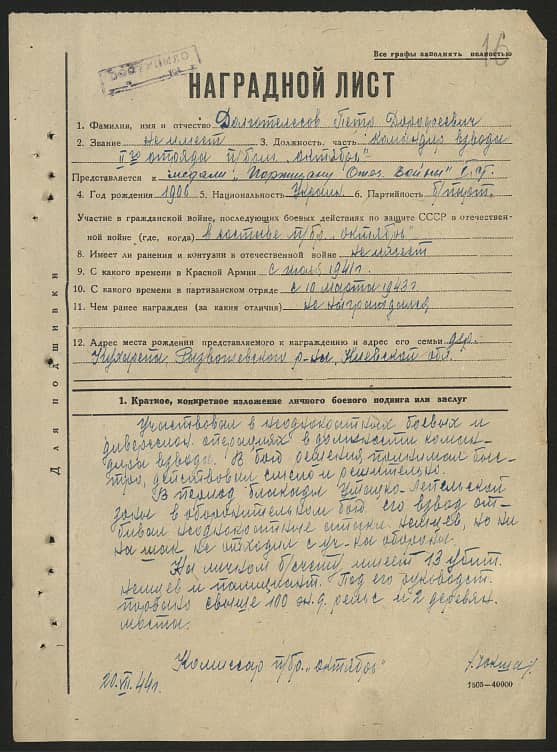 16
Все графы заполнять полностью
НАГРАДНОЙ ЛИСТ
1. Фамилия, имя и отчество Долготелесов Петр Дорофеевич
2. Звание не имеет 3. Должность, часть командир взвода
отряда п/бриг. „Октябрь"
Представляется к медали „Партизану Отеч. Войны"
4. Год рождения 1906 5. Национальность Украин. 6. Партийность б/парт.
Участие в гражданской войне, последующих боевых действиях по защите СССР в отечествен-
ной войне (где, когда) в составе п/бр. „Октябрь"
8. Имеет ли ранения и контузии в отечественной войне не имеет
9. С какого времени в Красной Армии с июля 1941 г.
10. С какого времени в партизанском отряде с 10 марта 1943 г.
11. Чем ранее награжден (за какия отличия) не награждался
12. Адрес места рождения представляемого к награждению и адрес его семьи дер.
р-на, Киевской обл.
Для подшивки
1. Краткое, конкретное изложение личного боевого подвига или заслуг
Участвовал в неоднократных боевых и
диверсион. операциях в должности коман-
дира взвода. В бою решения принимал быс-
тро, действовал смело и решительно.
В период блокады Ушачско-Лепельской
зоны в оборонительном бою его взвод от-
бивал неоднократные атаки немцев, но ни
на шаг не отходил с уч-ка обороны.
На личном б/счету имеет 13 убит.
немцев и полицаент. Под его руководст.
порвано свыше 100 ж.д. рельс и 2 деревян.
моста.
Комиссар п/бр. „Октябрь"
20.VII.44 г.
1605—40000